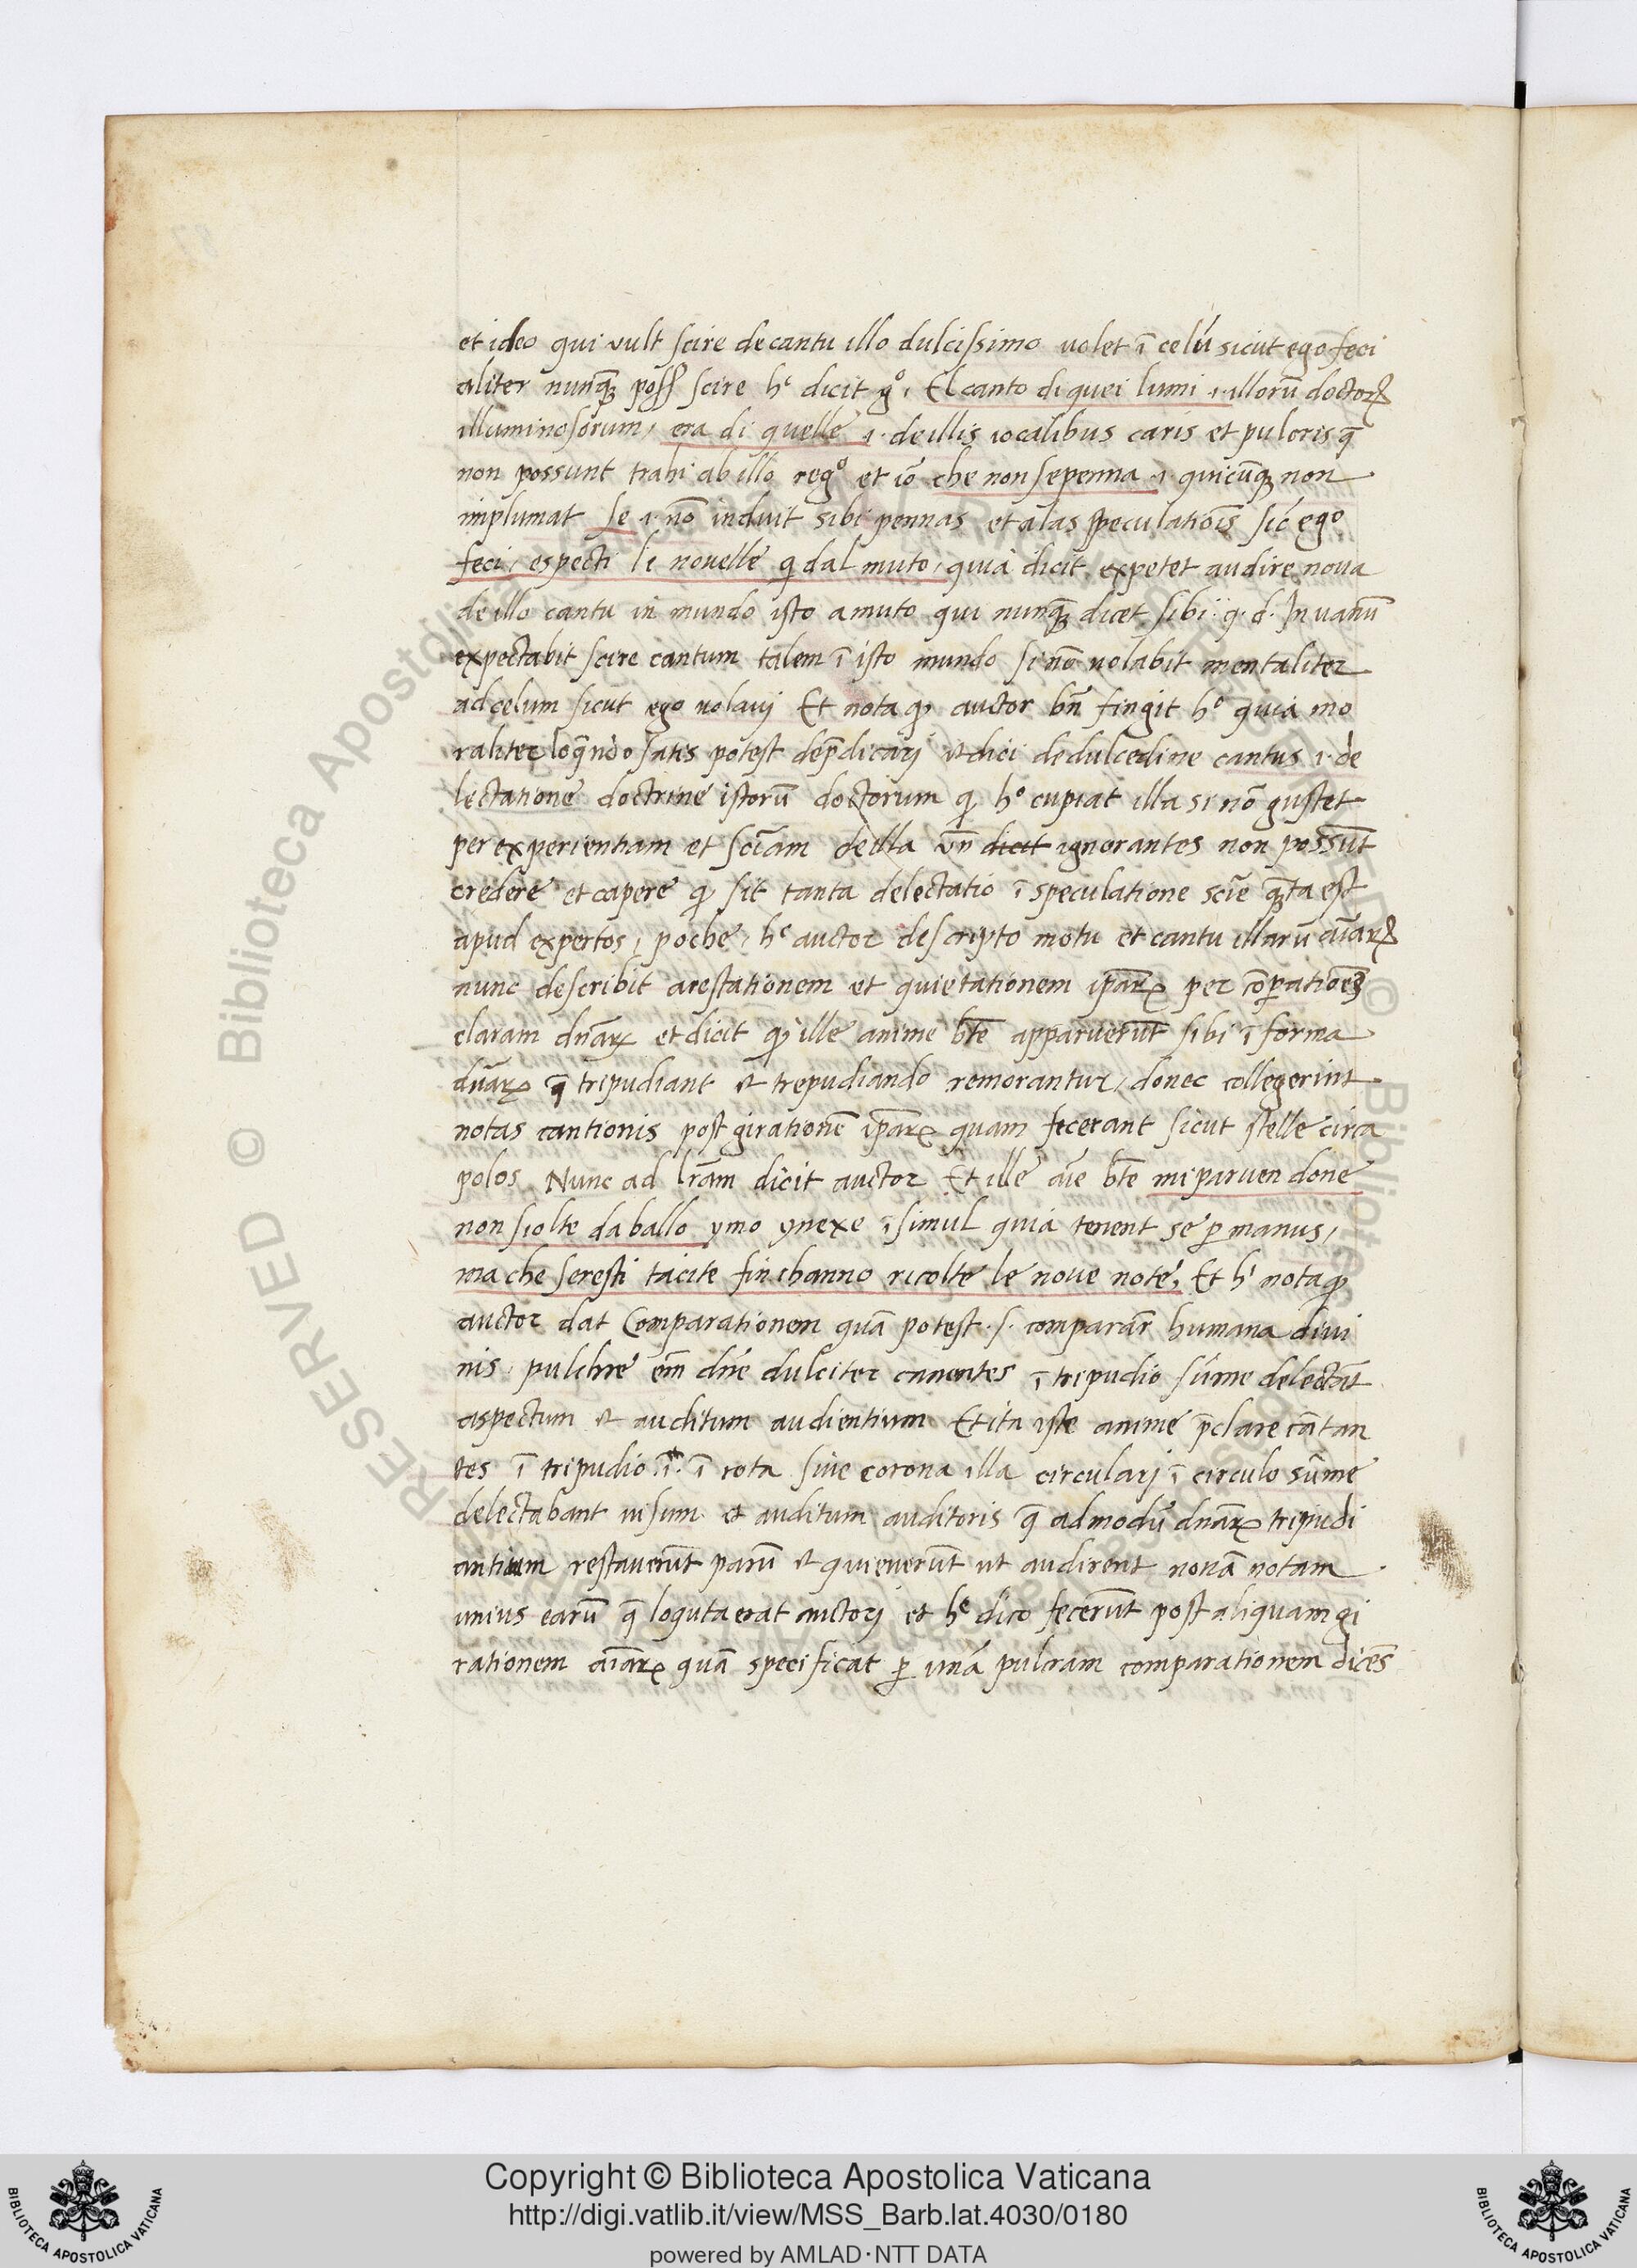 et ideo qui vult scire de cantu illo dulcissimo uolet ī celū sicut ego feci
aliter nunq̃ꝫ poss; scire hᶜ dicit gᵒ. El canto di quei lumi .i. illorū doctorꝝ
illuminosorum, era di quelle .i. de illis iocalibus caris et pulcris q̄
non possunt trahi ab illo regᵒ et iō che non sepenna .i. quicūqꝫ non
implumat se .i. nō induit sibi pennas et alas speculatiōis sic̄ ego
feci, especti le nouelle q̨ dal muto, quia dicit expetet audire noua
de illo cantu in mundo isto a muto qui nunq̃ꝫ dicet sibi: q. d. In uanū
expectabit scire cantum talem ī isto mundo si nō uolabit mentaliter
ad celum sicut ego volauj Et nota ꝙ auctor bn̄ fingit hᵒ quia mo
raliter loq̄ndo satis potest dep̄dicarj et dici de dulcedine cantus .i. de
lectatione doctrine istorū doctorum ꝙ hᵒ cupiat illa si nō gustet
per experientiam et sciam̄ de illa vn̄ dicit ignorantes non possūt
credere et capere ꝙ sit tanta delectatio ī speculatione scīe q̃ꝫta est
apud expertos, poche, hᶜ auctor descripto motu et cantu illarū aīarꝝ
nunc describit arestationem et quietationem ip̄arꝝ per cōpationēꝫ
claram dn̄arꝝ et dicit ꝙ ille anime bt̄e apparuerūt sibi ī forma
dn̄arꝝ q̄ tripudiant et trepudiando remorantur, donec collegerint
notas cantionis post girationē ip̄arꝝ quam fecerant sicut stelle circa
polos Nunc ad lr̄am dicit auctor Et ille aīe bt̄e mi paruen done
non siolte da ballo ymo ynexe īsimul quia tenent se ꝑ manus,
ma che seresti tacite fin channo ricolte le noue note, Et hⁱ nota ꝙ
auctor dat Comparationem quā potest .s. comparār humana diui
nis, pulchre em̄ dn̄e dulciter canentes ī tripudio sūme delectāt
aspectum et auditum audientium Et ita iste anime p̄clare cātan
tes ī tripudio .i. ī rota siue corona illa circularj ī circulo sūme
delectabant uisum et auditum auditoris q̄ ad modū dn̄arꝝ tripudi
antium restauerūt parū et quieuerūt ut audirent nouā notam
unius earū q̄ loquta erat auctorj et hᶜ dico fecerūt post aliquam gi
rationem aīarꝝ quā specificat ꝑ unā pulcram comparationem dicēs
RESERVED © Biblioteca Apostolica
Copyright © Biblioteca Apostolica Vaticana
http://digi.vatlib.it/view/MSS_Barb.lat.4030/0180
powered by AMLAD·NTT DATA
BIBLIOTECA APOSTOLICA VATICANA
BIBLIOTECA APOSTOLICA VATICANA